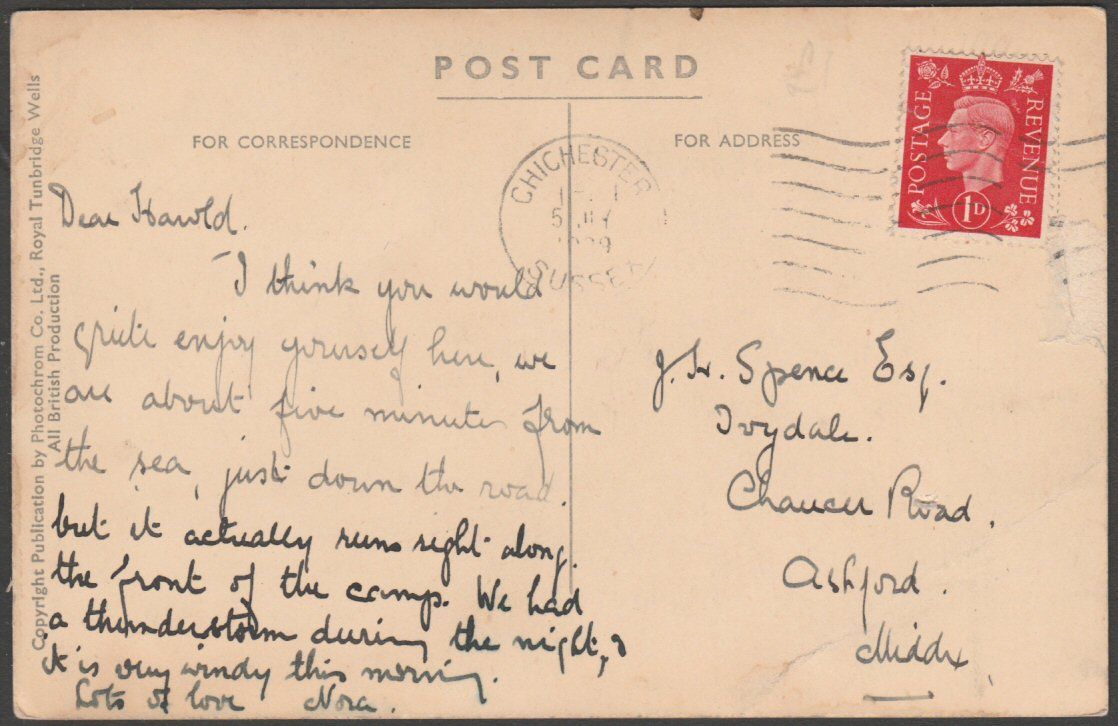 POST CARD
FOR CORRESPONDENCE
FOR ADDRESS
Copyright Publication by Photochrom Co. Ltd., Royal Tunbridge Wells
All British Production
CHICHESTER
5
1939
SUSSEX
POSTAGE
REVENUE
1D
Dear Harold.
I think you would
quite enjoy yourself here, we
are about five minutes from
the sea, just down the road.
but it actually runs right along
the front of the camp. We had
a thunderstorm during the night, &
it is very windy this morning.
Lots of love Nora.
J. H. Spence Esq.
Ivydale.
Chaucer Road.
Ashford.
Middx